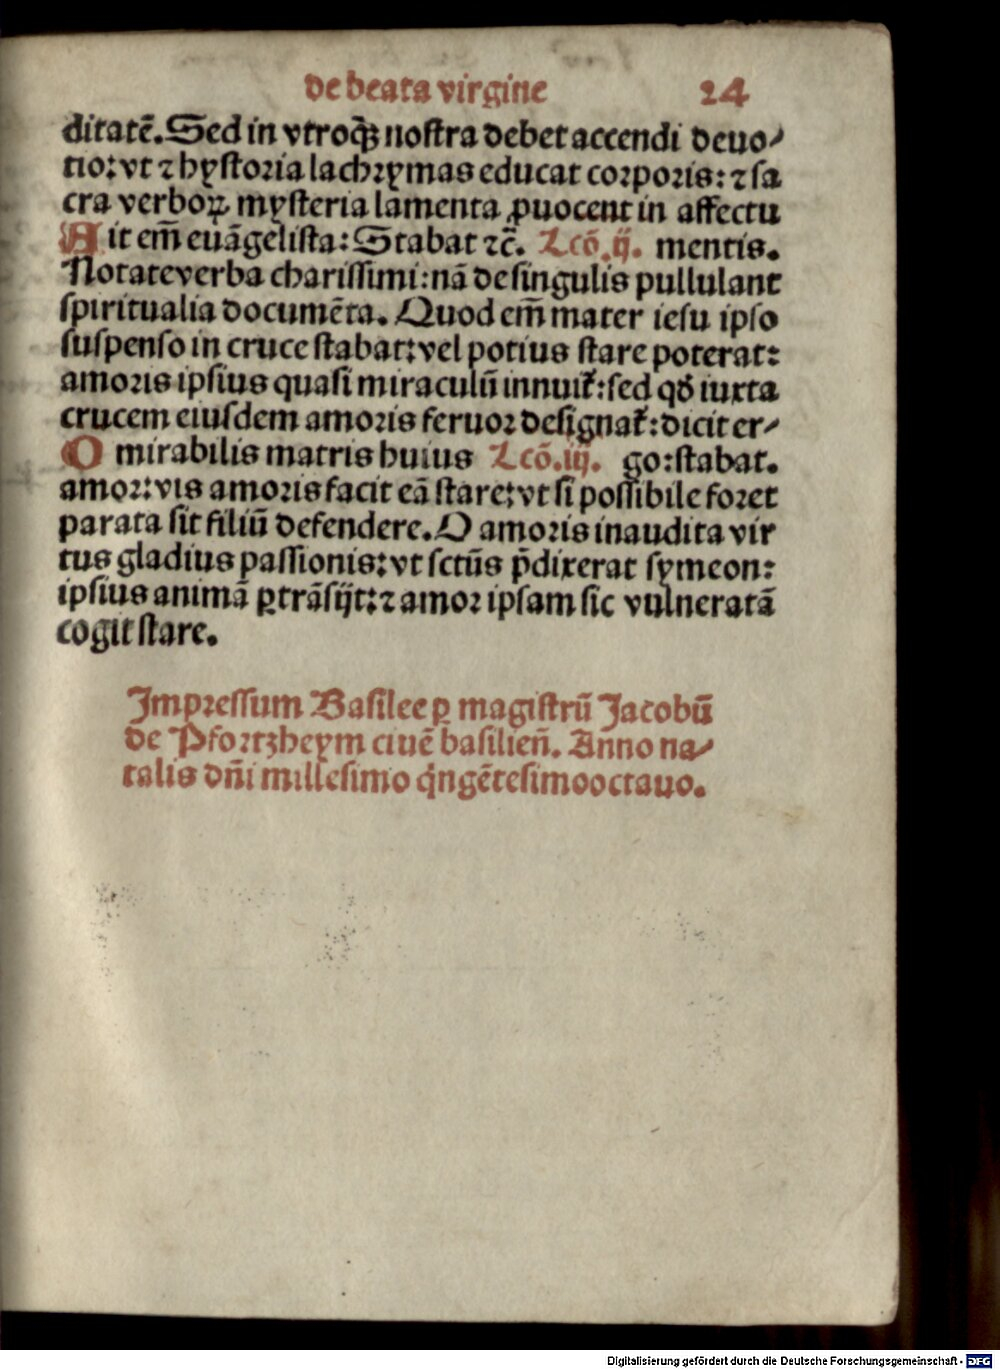 de beata virgine 24
ditatē. Sed in vtroqꝫ nostra debet accendi deuo⸗
tio: vt ⁊ hystoria lachrymas educat corporis: ⁊ sa
cra verboꝝ mysteria lamenta ꝓuocent in affectu
Ait em̄ euāgelista: Stabat ⁊c̄. Lcō.ij. mentis.
Notate verba charissimi: nā de singulis pullulant
spiritualia documēta. Quod em̄ mater iesu ipso
suspenso in cruce stabat: vel potius stare poterat:
amoris ipsius quasi miraculū innuit̉: sed qđ iuxta
crucem eiusdem amoris feruor designat̉: dicit er⸗
O mirabilis matris huius Lcō.iij. go: stabat.
amor: vis amoris facit eā stare: vt si possibile foret
parata sit filiū defendere. O amoris inaudita vir
tus gladius passionis: vt sctūs p̄dixerat symeon:
ipsius animā ꝑtrāsijt: ⁊ amor ipsam sic vulneratā
cogit stare.
Impressum Basilee ꝑ magistrū Jacobū
de Pfortzheym ciuē basilien̄. Anno na⸗
talis dn̄i millesimo qͥngētesimooctauo.
Digitalisierung gefördert durch die Deutsche Forschungsgemeinschaft - DFG